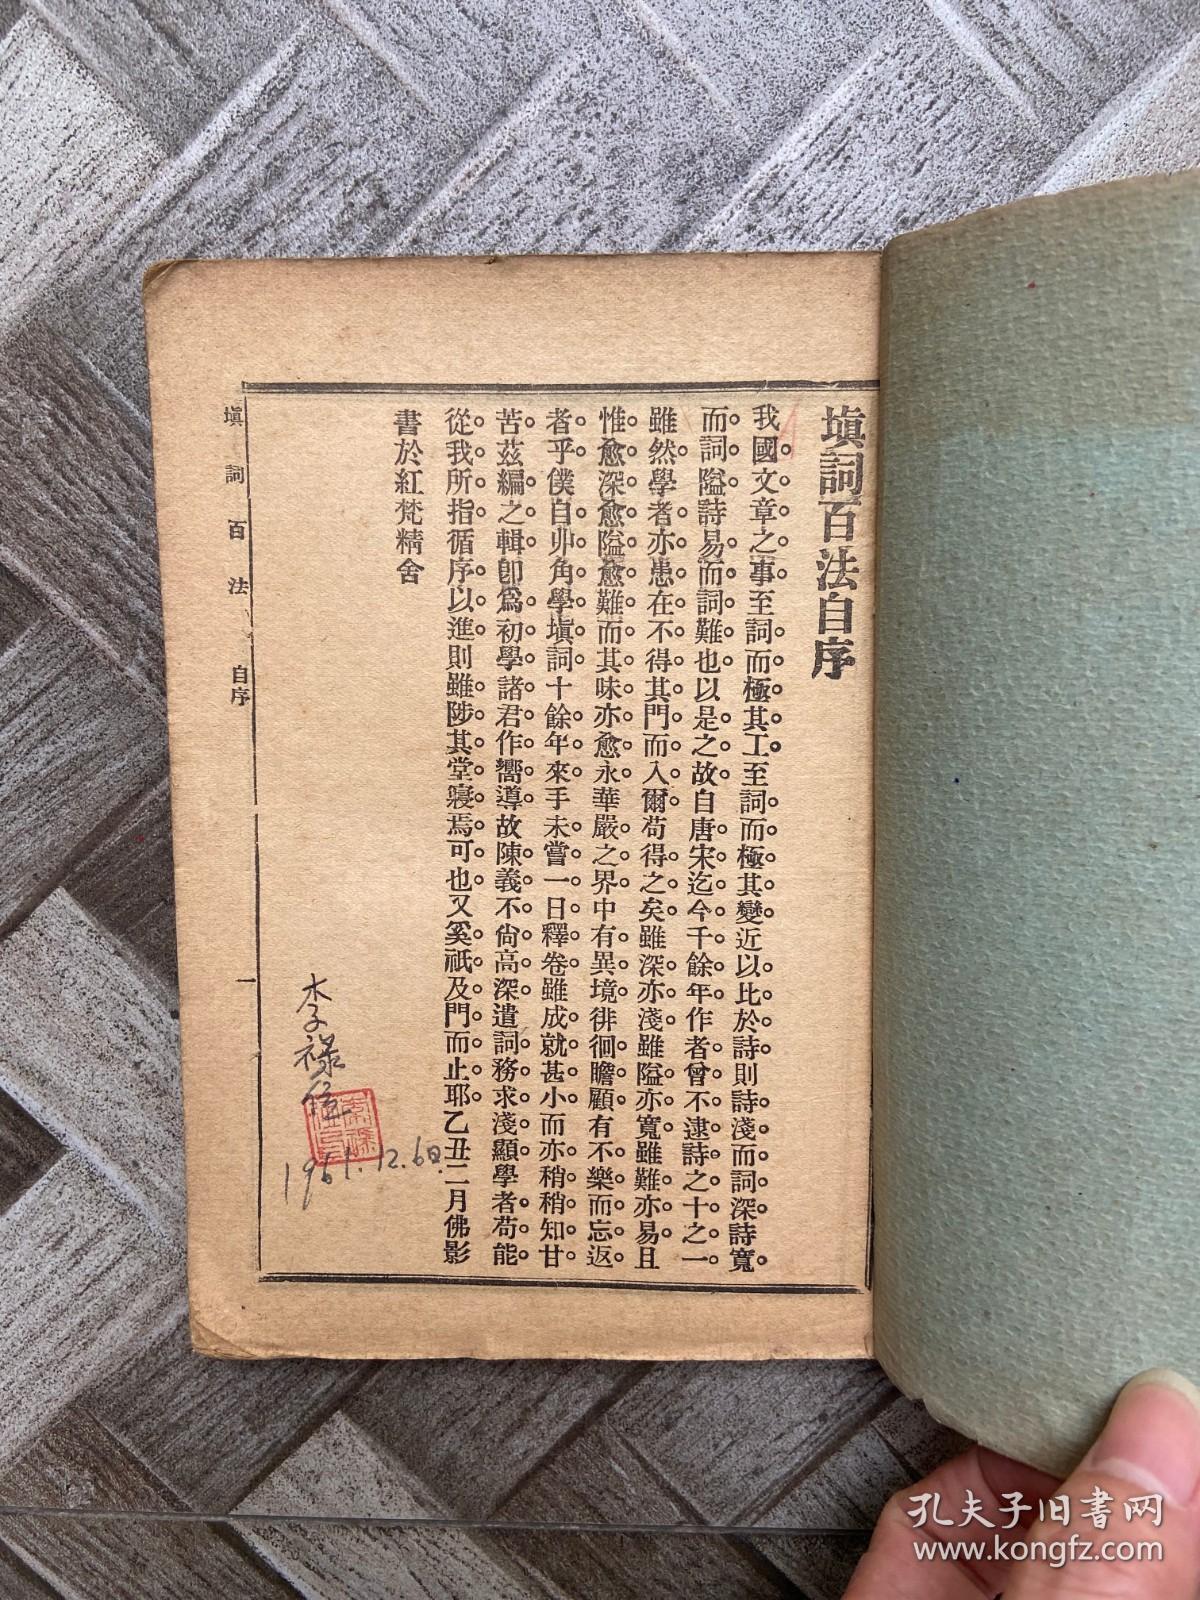 填詞百法自序
我國文章之事。至詞而極其工。至詞而極其變。近以比於詩。則詩淺而詞深。詩寬
而詞隘。詩易而詞難也。以是之故。自唐宋迄今。千餘年。作者曾不逮詩之十之一。
雖然學者亦患在不得其門而入爾。苟得之矣。雖深亦淺。雖隘亦寬。雖難亦易。且
惟愈深愈隘愈難。而其味亦愈永。華嚴之界。中有異境。徘徊瞻顧。有不樂而忘返
者乎。僕自丱角學填詞。十餘年來。手未嘗一日釋卷。雖成就甚小。而亦稍稍知甘
苦。茲編之輯。卽爲初學諸君作嚮導。故陳義不尙高深。遣詞務求淺顯。學者苟能
從我所指。循序以進。則雖陟其堂寢焉可也。又奚祇及門而止耶。乙丑二月佛影
書於紅梵精舍
填詞百法
自序
一
李祿
1961.12.6日.
孔夫子旧书网
www.kongfz.com